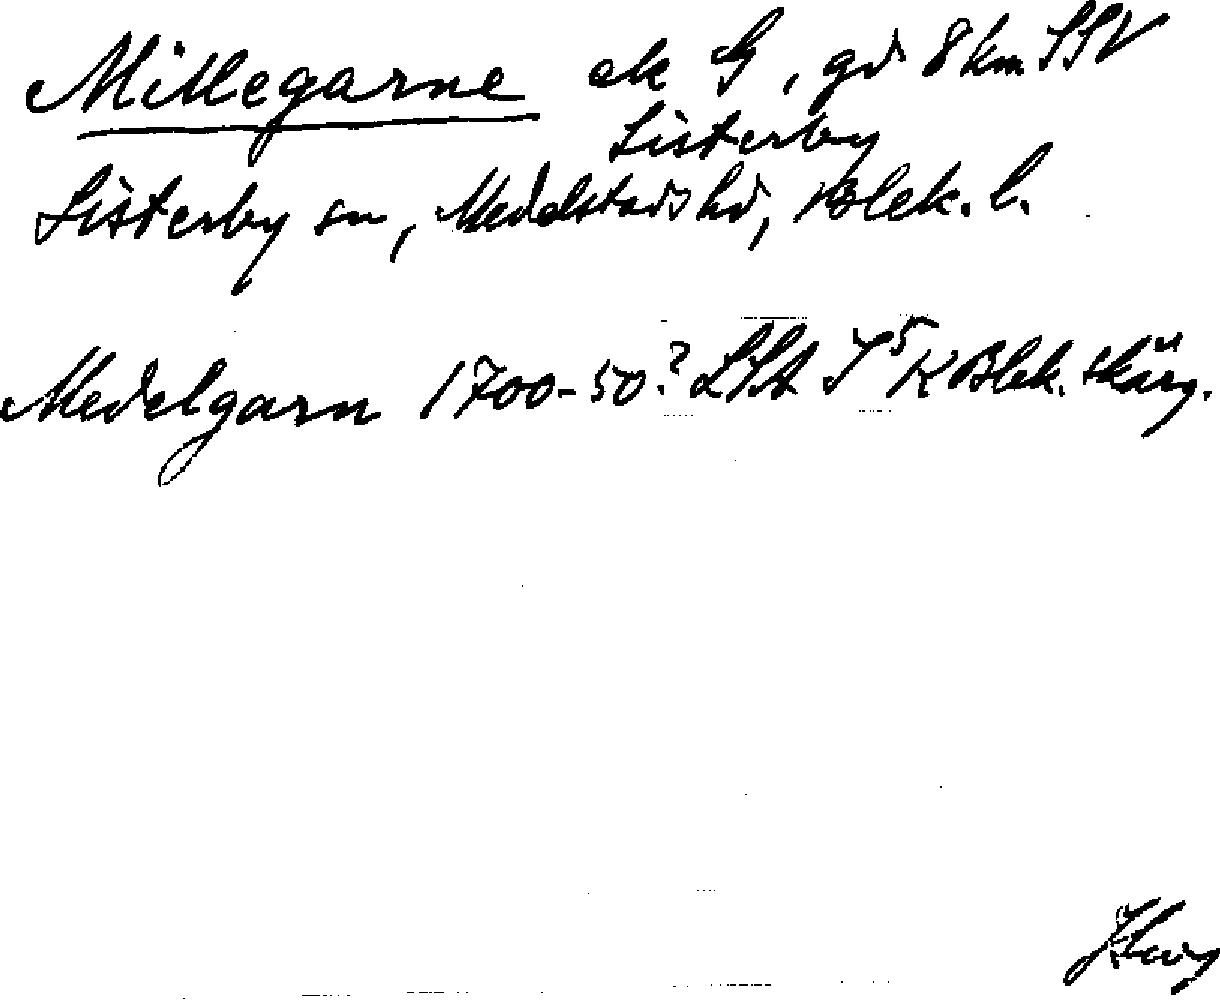 Millegarne ek G, gd 8 km SSV
Listerby
Listerby sn, Medelstads hd, Blek. l.
Medelgarn 1700-50? LSA S⁵ K Blek. skärg.